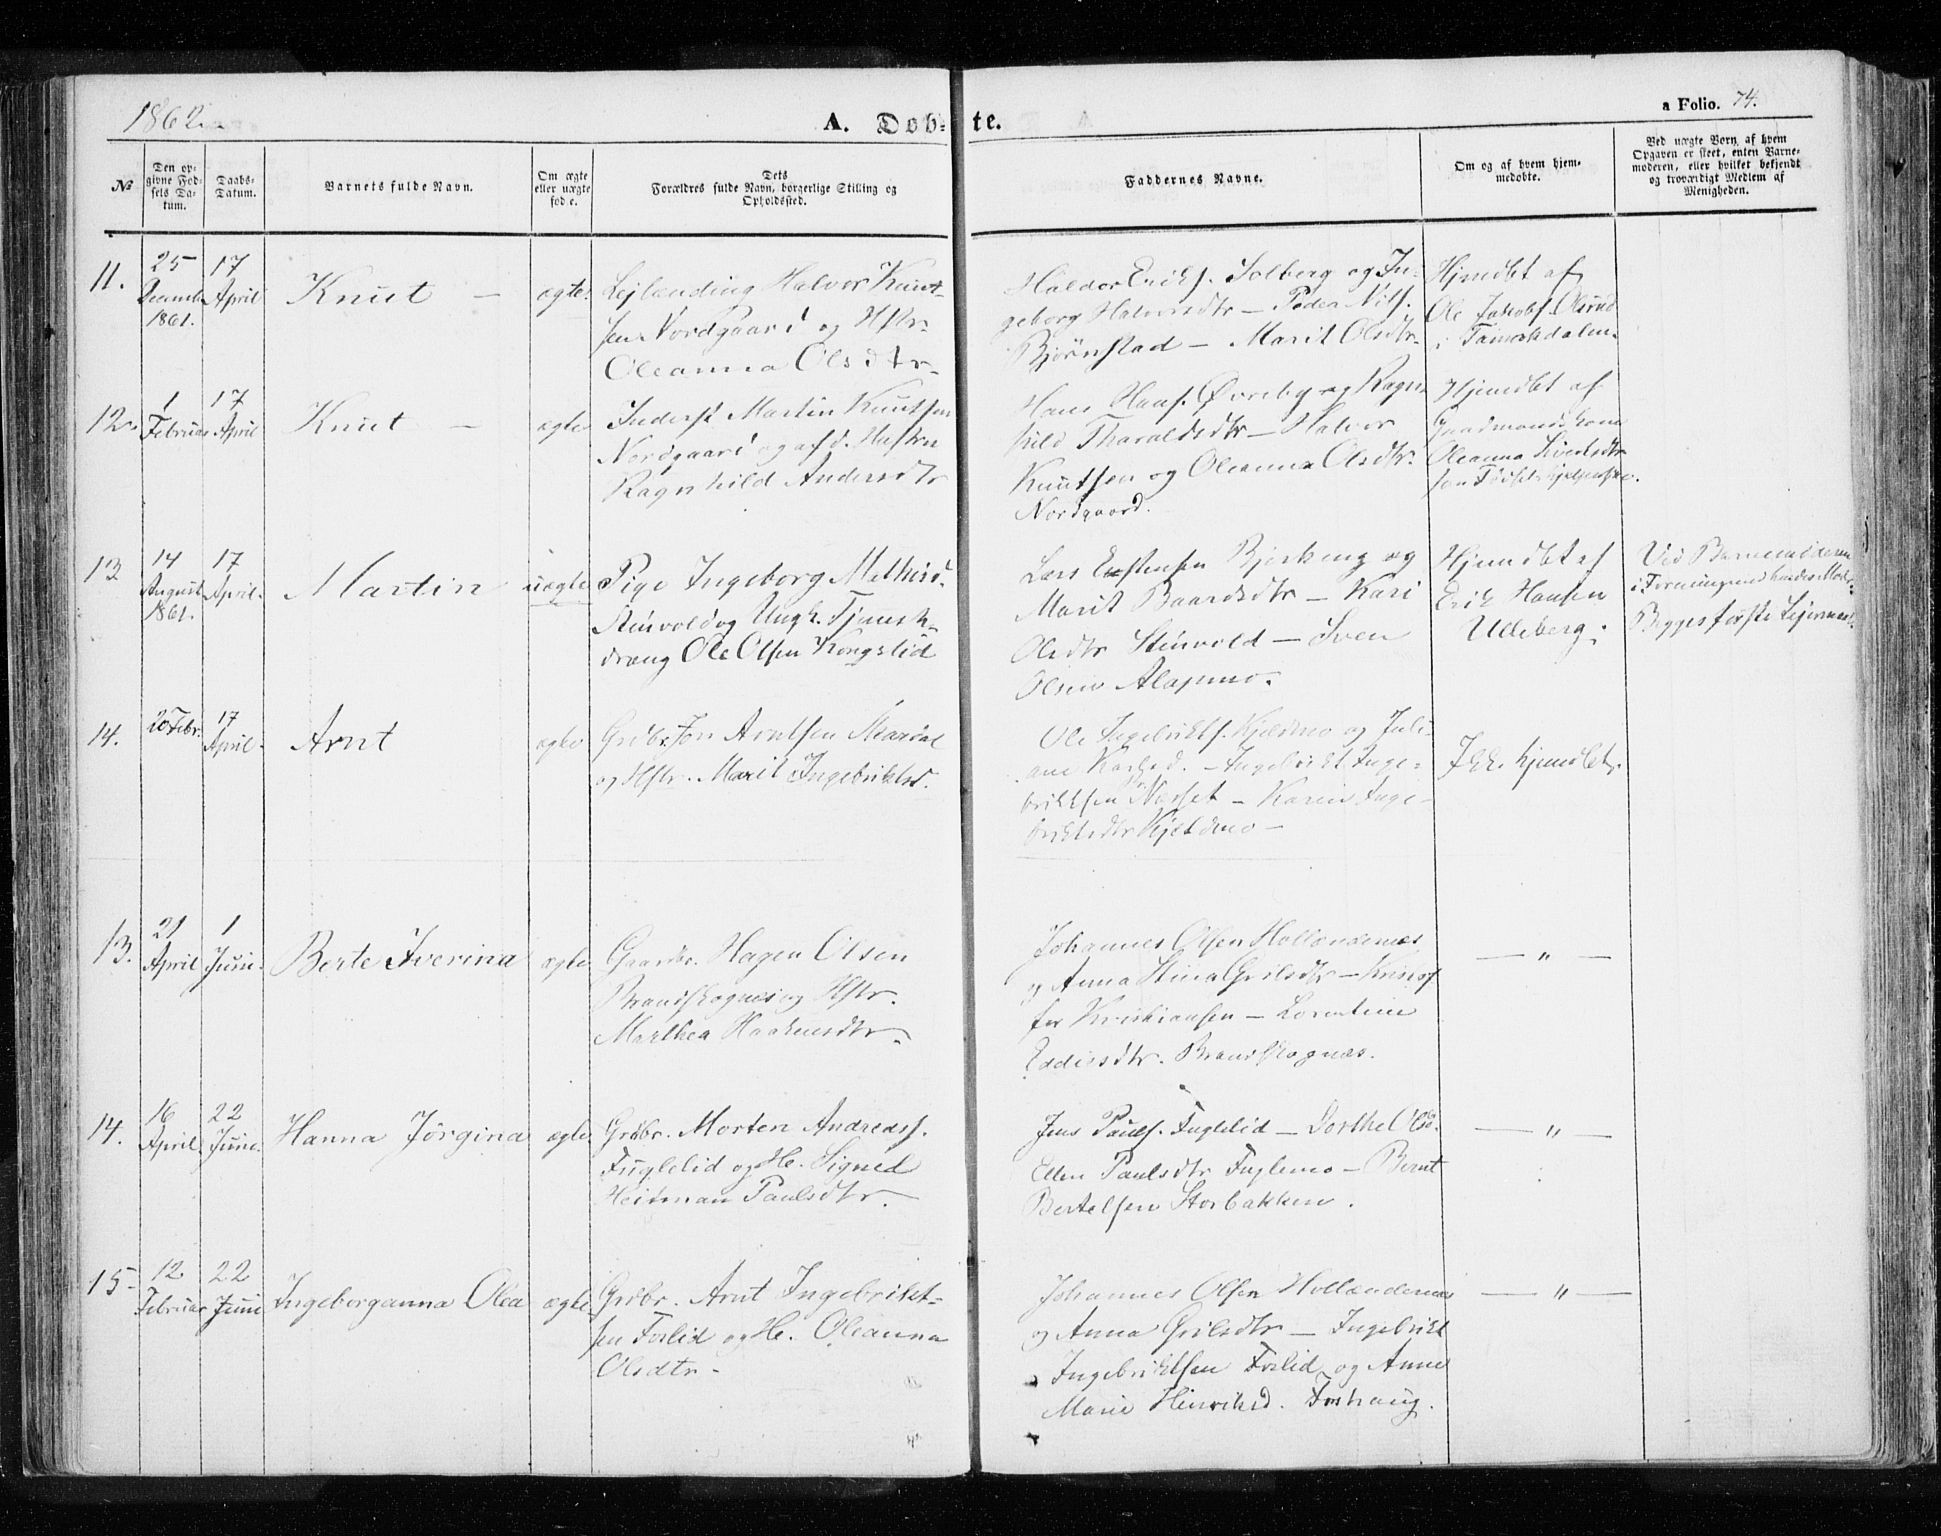 1862.
A. Døb-te.
a Folio. 74.
№
Den op-
givne Fød-
sels Da-
tum.
Daabs-
Datum.
Barnets fulde Navn.
Om ægte
eller uægte
fød e.
Dets
Forældres fulde Navn, borgerlige Stilling og
Opholdssted.
Faddernes Navne.
Om og af hvem hjem-
medøbte.
Ved uægte Børn, af hvem
Opgaven er skeet, enten Barne-
moderen, eller hvilket bekjendt
og troværdigt Medlem af
Menigheden.
11.
25
Decemb.
1861.
17
April
Knut –
ægte.
Lejlænding Halvor Knut-
sen Nordgaard og Hstr.
Oleanna Olsdtr.
Haldor Eriks. Solberg og In-
geborg Halvorsdtr – Peder Nils.
Bjørnstad – Marit Olsdtr.
Hjemdbt af
Ole Jakobs. Olsrud
i Tamokdalen.
12.
1
Februar
17
April
Knut –
ægte
Inderst Martin Knutsen
Nordgaard og afd. Hustru
Ragnhild Andersdtr
Hans Hans. Øvreby og Ragn-
hild Tharaldsdtr – Halvor
Knutsen og Oleanna Olsdtr.
Nordgaard.
Hjemdbt af
Gaardmandskone
Oleanna
13
14
August
1861.
17
April.
Martin
uægte
Pige Ingeborg Mathisd.
og Ungk. Tjeneste-
dreng Ole Olsen Kongslid
Lars Estensen Bjerkeng og
Marit Baardsdtr – Kari
Olsdtr – Sven
Olsen Alapmo.
Hjemdbt af
Erik Hansen
Uleberg.
Ved Barnemoderen
Begges første Lejermaal.
14.
20 Febr.
17
April.
Arnt
ægte
Grdbr. Jon Arntsen
og Hstr. Marit Ingebriktsd.
Ole Ingebrikts. Kjeldmo og Juli-
ane – Ingebrikt Inge-
briktsen Næsset – Karen Inge-
briktsdtr Kjeldmo –
Ikke hjemdbt.
13.
21
April
1
Juni.
Berte Iverina
ægte
Gaardbr. Hagen Olsen
Brandskognes og Hstr.
Marthea Haakensdtr.
Johannes Olsen Hollændernes
og Anna Stina Grilsdtr – Kristof-
fer Kristiansen – Lorentine
Eddisdtr. Brandskognæs.
– „ –
14.
16
April
22
Juni.
Hanna Jørgina
ægte
Grdbr. Morten Andreass.
Fuglelid og H. Signed
Heitman Paulsdtr.
Jens Pauls. Fuglelid – Dorthe Olsd.
Ellen Paulsdtr Fuglemo – Bernt
Bertelsen Storbakken.
– „ –
15
12
Februar
22
Juni
Ingeborganna Olea
ægte
Grdbr. Arnt Ingebrikt-
sen Foslid og H. Oleanna
Olsdtr –
Johannes Olsen Hollændernes
og Anna Grilsdtr – Ingebrikt
Ingebriktsen Foslid og Anne
Marie Henriksd. Foshaug.
– „ –